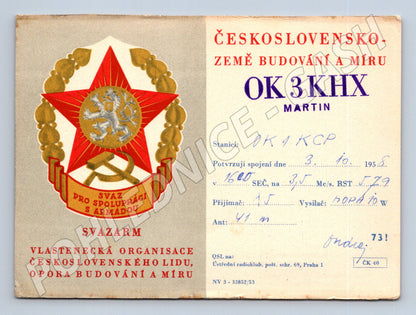 SVAZ
PRO SPOLUPRÁCI
S ARMÁDOU
SVAZARM
VLASTENECKÁ ORGANISACE
ČESKOSLOVENSKÉHO LIDU,
OPORA BUDOVÁNÍ A MÍRU
ČESKOSLOVENSKO-
ZEMĚ BUDOVÁNÍ A MÍRU
OK 3 KHX
MARTIN
Stanici: OK 1 KCP
Potvrzuji spojení dne 3. 10. 1956
v 1600 SEČ, na 3,5 Mc/s. RST 579
Přijímač: 15 Vysílač: 10 W
Ant: 41 m
Ondrej 73!
QSL na:
Ústřední radioklub, pošt. schr. 69, Praha 1
ČK 40
NV 3 - 33852/53
POHLEDNICE - CASH